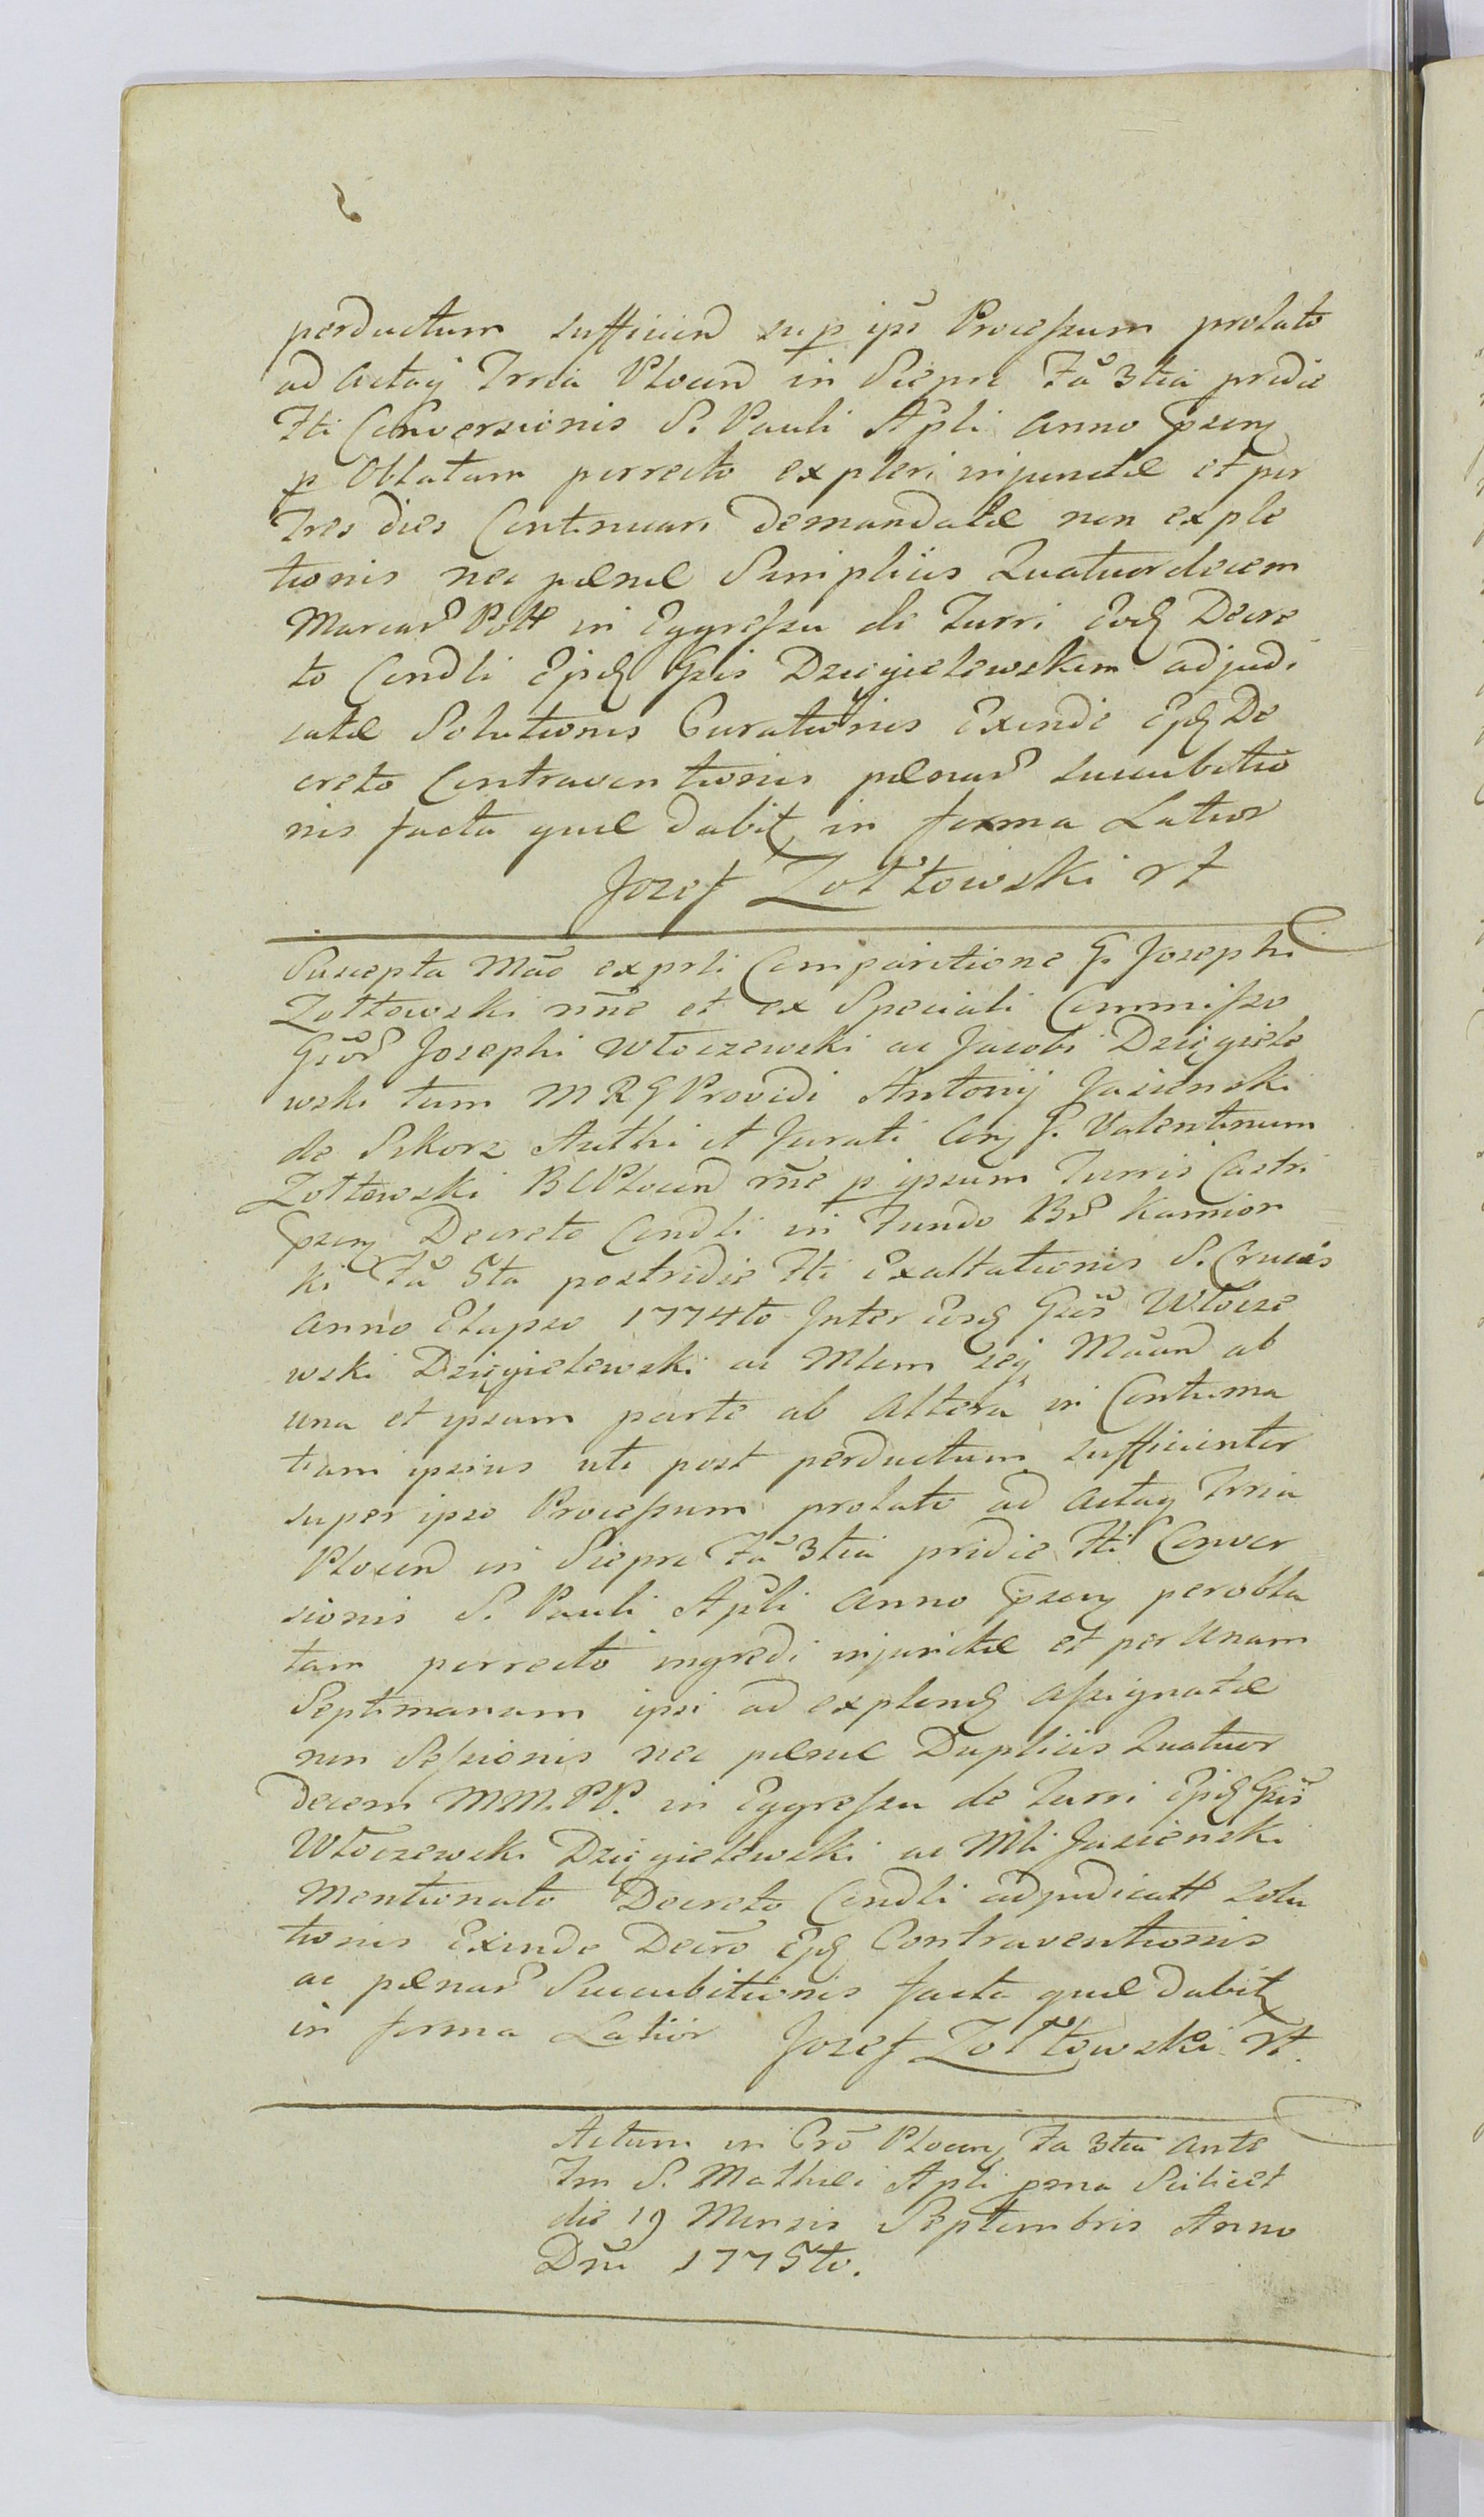 perductum sufficien sup ips Processum prolato
ad Actaq Trria Plocen in Siepre Fa 3tia pridie
Fti Conversionis S. Pauli Apli Anno Pzen
p Oblatam porrecto expleri injunctæ et per
Tres dies Continuari demandatæ non exple
tionis nec pænæ Simplicis Quatuordecem
Marcar Poll in Eggressu de Turri Eod Decre
to Condli Ejsd Gsis Dzięgielewskim adjudi
catæ Solutionis Curationis Exinde Ejd De
creto Contraventionis pænar succubitio
nis facta quæ dabit in forma Latior
Jozef Zołtowski rt
Suscepta Mae exprli Comparitione G. Josephi
Zołtowski nne et ex Speciali Commisso
Gsor Josephi Włoczewski ac Jacobi Dzięgiele
wski tum M R G Providi Antonij Jasienski
de Sikorz Authi et Jurati Con G. Valentinum
Zołtowski BCPlocen rne p ipsum Turris Castri
Pzen Decreto Condli in Fundo Br Kamion
ki Fa 5ta postridie Fti Exaltationis S. Crucis
Anno Elapso 1774to Inter Eosd Gsis Włocze
wski Dzięgielewski ac Mlem seq Maan ab
una et ipsum parte ab Altera in Contuma
tiam ipsius uti post perductum sufficienter
super ipso Processum prolato ad Actaq Trria
Plocen in Siepre Fa 3tia pridie Fti Conver
sionis S. Pauli Apli Anno Pzen perobla
tam porrecto ingredi injunctæ et per Unam
Septimanam ipsi ad explend Assignatæ
non Sessionis nec pænæ Duplicis Quatuor
decem MM. PP. in Eggressu de Turri Ejsd Gsis
Włoczewski Dzięgielewski ac Mli Jasienski
Mentionato Decreto Condli adjudicatt Solu
tionis Exinde Decro Ejd Contraventionis
ac pænar Succubitionis facta quæ dabit
in forma Latior Jozef Zołtowski rt.
Actum in Cro Plocen Fa 3tia Ante
Fm S. Mathæi Apli pma Scilicet
die 19 Mensis Septembris Anno
Dni 1775to.